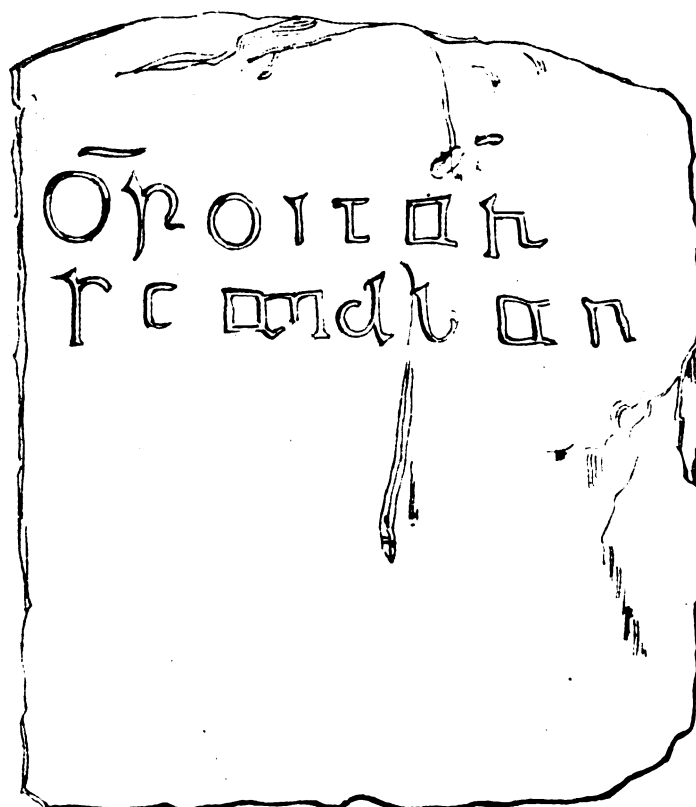 Ōroit ar
scandlan